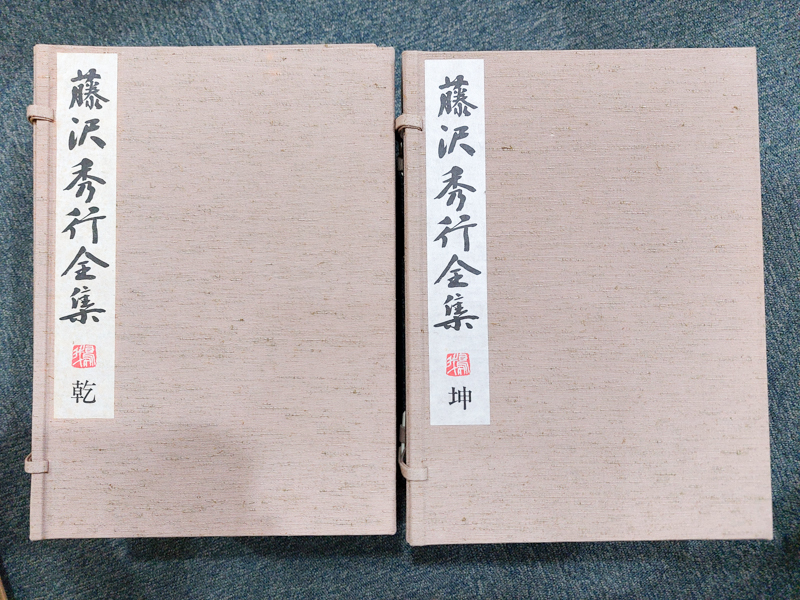 藤沢秀行全集
乾
藤沢秀行全集
坤